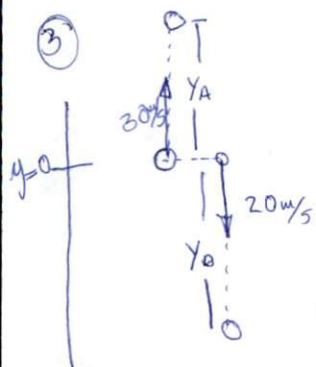 3
YA
30m/s
y=0
20m/s
YB